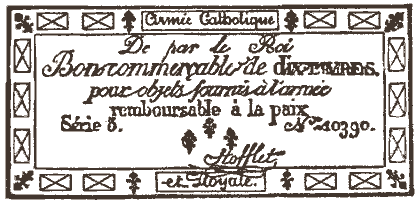 Armée Catholique
De par le Roi
Bon commerçable de dix livres.
pour objets fournis à l'armée
remboursable à la paix
Série 5. No. 10390.
Stofflet
et Royale.